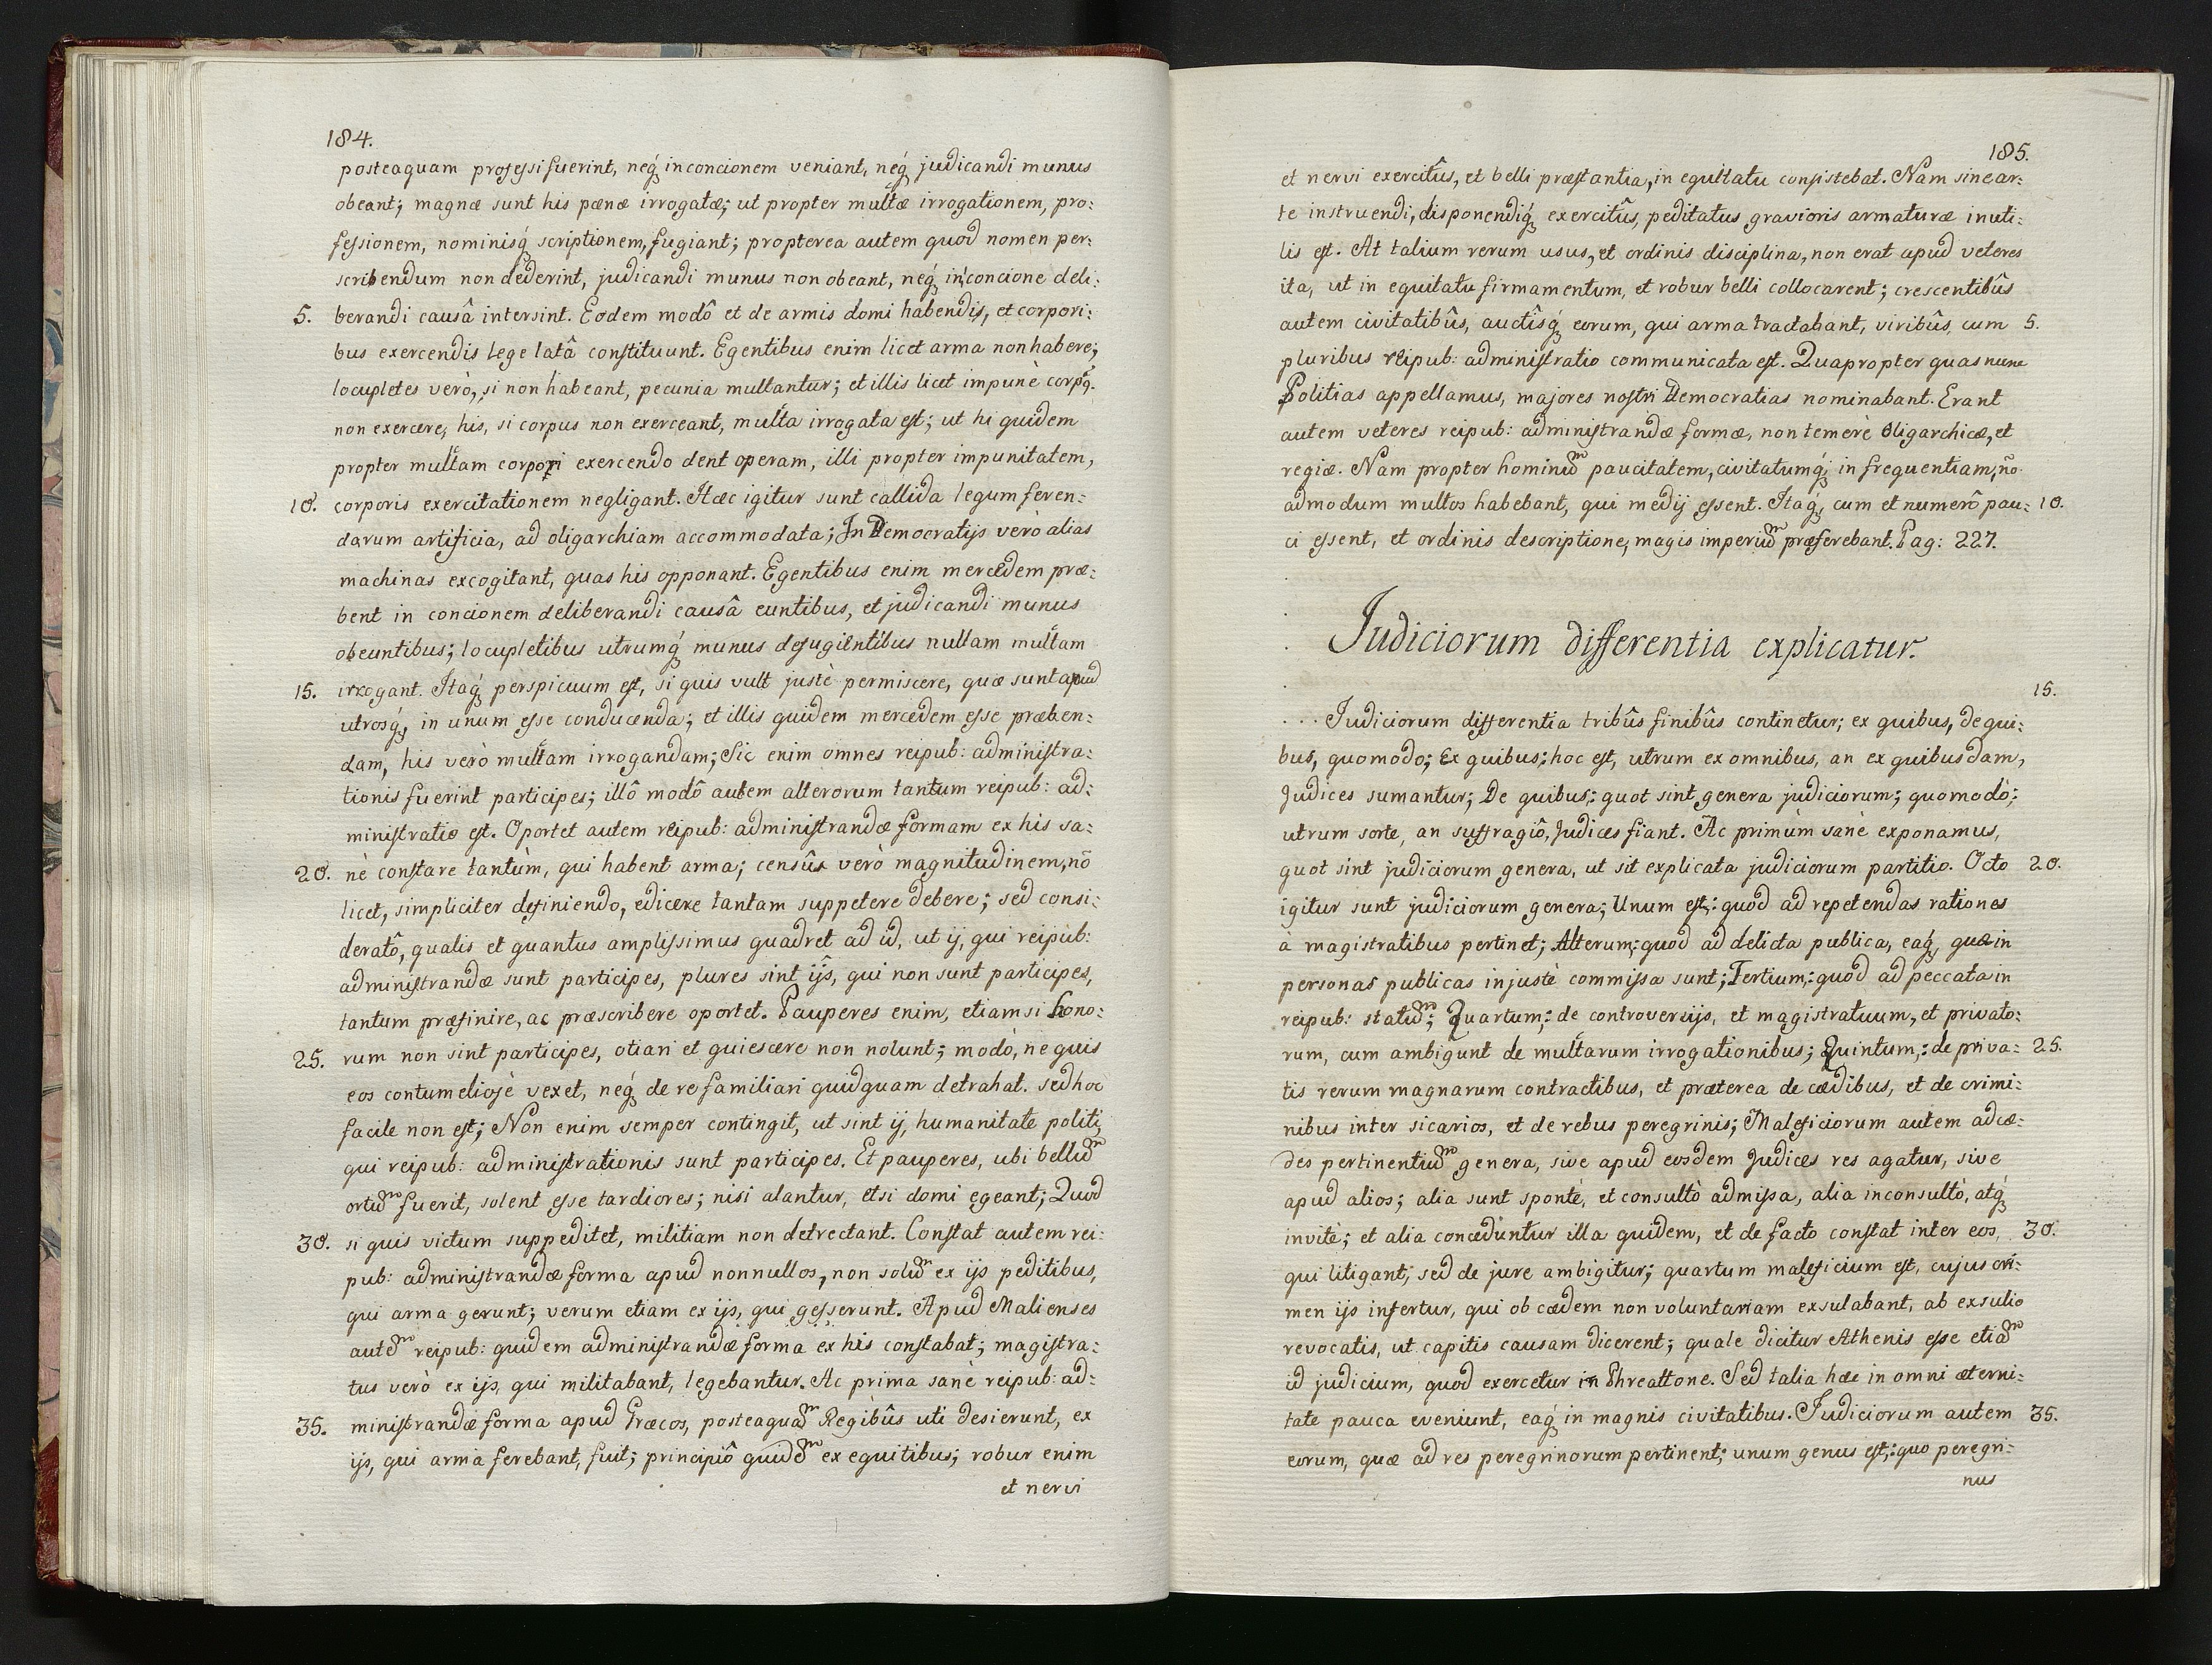 184.
posteaquam professi fuerint, neq́ꝫ in concionem veniant, neq́ꝫ judicandi munus
obeant; magnæ sunt his pænæ irrogatæ; ut propter multæ irrogationem, pro:
fessionem, nominisq́ꝫ scriptionem, fugiant; propterea autem quod nomen per:
scribendum non dederint, judicandi munus non obeant, neq́ꝫ in concione deli:
5. berandi causâ intersint. Eodem modô et de armis domi habendis, et corpori:
bus exercendis lege latâ constituunt. Egentibus enim licet arma non habere;
locupletes verò, si non habeant, pecunia multantur; et illis licet impunè corpq.
non exercere, his, si corpus non exerceant, multa irrogata est; ut hi quidem
propter multam corpori exercendo dent operam, illi propter impunitatem,
10. corporis exercitationem negligant. Hæc igitur sunt callida legum feren:
darum artificia, ad oligarchiam accommodata; In Democratijs verò alias
machinas excogitant, quas his opponant. Egentibus enim mercedem præ:
bent in concionem deliberandi causâ euntibus, et judicandi munus
obeuntibus; locupletibus utrumq́ꝫ munus defugientibus nullam multam
15. irrogant. Itaq́ꝫ perspicuum est, si quis vult justè permiscere, quæ sunt apud
utrosq́ꝫ, in unum esse conducenda; et illis quidem mercedem esse præben:
dam, his verò multam irrogandam; Sic enim omnes reipub: administra:
tionis fuerint participes; illô modô autem alterorum tantum reipub: ad:
ministratio est. Oportet autem reipub: administrandæ formam ex his sa:
20. nè constare tantùm, qui habent arma; censûs verò magnitudinem, nō
licet, simpliciter definiendo, edicere tantam suppetere debere; sed consi:
deratô, qualis et quantus amplissimus quadret ad id, ut ij, qui reipub:
administrandæ sunt participes, plures sint ijs, qui non sunt participes,
tantum præfinire, ac præscribere oportet. Pauperes enim, etiamsi hono:
25. rum non sint participes, otiari et quiescere non nolunt; modò, ne quis
eos contumeliosè vexet, neq́ꝫ de re familiari quidquam detrahat. sed hoc
facile non est; Non enim semper contingit, ut sint ij, humanitate politi,
qui reipub: administrationis sunt participes. Et pauperes, ubi bellũ
ortũ fuerit, solent esse tardiores; nisi alantur, etsi domi egeant; Quod
30. si quis victum suppeditet, militiam non detrectant. Constat autem rei:
pub: administrandæ forma apud nonnullos, non solũ ex ijs peditibus,
qui arma gerunt; verum etiam ex ijs, qui gesserunt. Apud Malienses
autẽ reipub: quidem administrandæ forma ex his constabat; magistra:
tus verò ex ijs, qui militabant, legebantur. Ac prima sanè reipub: ad:
35. ministrandæ forma apud Græcos, posteaquã Regibûs uti desierunt, ex
ijs, qui arma ferebant, fuit; principiô quidẽ ex equitibus; robur enim
et nervi
185.
et nervi exercitûs, et belli præstantia, in equitatu consistebat. Nam sine ar:
te instruendi, disponendiq́ꝫ exercitûs, peditatus gravioris armaturæ inuti:
lis est. At talium rerum usus, et ordinis disciplina, non erat apud veteres
ita, ut in equitatu firmamentum, et robur belli collocarent; crescentibûs
autem civitatibûs, auctîsq́ꝫ eorum, qui arma tractabant, viribûs, cum 5.
pluribus reipub: administratio communicata est. Quapropter quas nunc
Politias appellamus, majores nostri Democratias nominabant. Erant
autem veteres reipub: administrandæ formæ, non temerè Oligarchicæ, et
regiæ. Nam propter hominũ paucitatem, civitatumq́ꝫ in frequentiam, nō
admodum multos habebant, qui medij essent. Itaq́ꝫ, cum et numerô pau: 10.
ci essent, et ordinis descriptione, magis imperiũ præferebant. Pag: 227.
Judiciorum differentia explicatur.
15.
Judiciorum differentia tribûs finibûs continetur; ex quibus, de qui:
bus, quomodo; Ex quibus; hoc est, utrum ex omnibus, an ex quibusdam,
Judices sumantur; De quibus: quot sint genera judiciorum; quomodò;
utrum sorte, an suffragiô, Judices fiant. Ac primùm sanè exponamus,
quot sint judiciorum genera, ut sit explicata judiciorum partitio. Octo 20.
igitur sunt judiciorum genera; Unum est: quod ad repetendas rationes
à magistratibus pertinet; Alterum: quod ad delicta publica, eaq́ꝫ, quæ in
personas publicas injustè commissa sunt; Tertium: quod ad peccata in
reipub: statũ; Quartum: de controversijs, et magistratuum, et privato:
rum, cum ambigunt de multarum irrogationibus; Quintum: de priva: 25.
tis rerum magnarum contractibus, et præterea de cædibus, et de crimi:
nibus inter sicarios, et de rebus peregrinis; Maleficiorum autem ad cæ:
des pertinentiũ genera, sive apud eosdem Judices res agatur, sive
apud alios; alia sunt spontè, et consultò admissa, alia inconsultò, atq́ꝫ
invitè; et alia conceduntur illa quidem, et de facto constat inter eos, 30.
qui litigant; sed de jure ambigitur; quartum maleficium est, cujus cri:
men ijs infertur, qui ob cædem non voluntariam exsulabant, ab exsulio
revocatis, ut capitis causam dicerent; quale dicitur Athenis esse etiã
id judicium, quod exercetur in Phreattone. Sed talia hæc in omni æterni:
tate pauca eveniunt, eaq́ꝫ in magnis civitatibus. Judiciorum autem 35.
eorum, quæ ad res peregrinorum pertinent; unum genus est: quo peregri:
nus